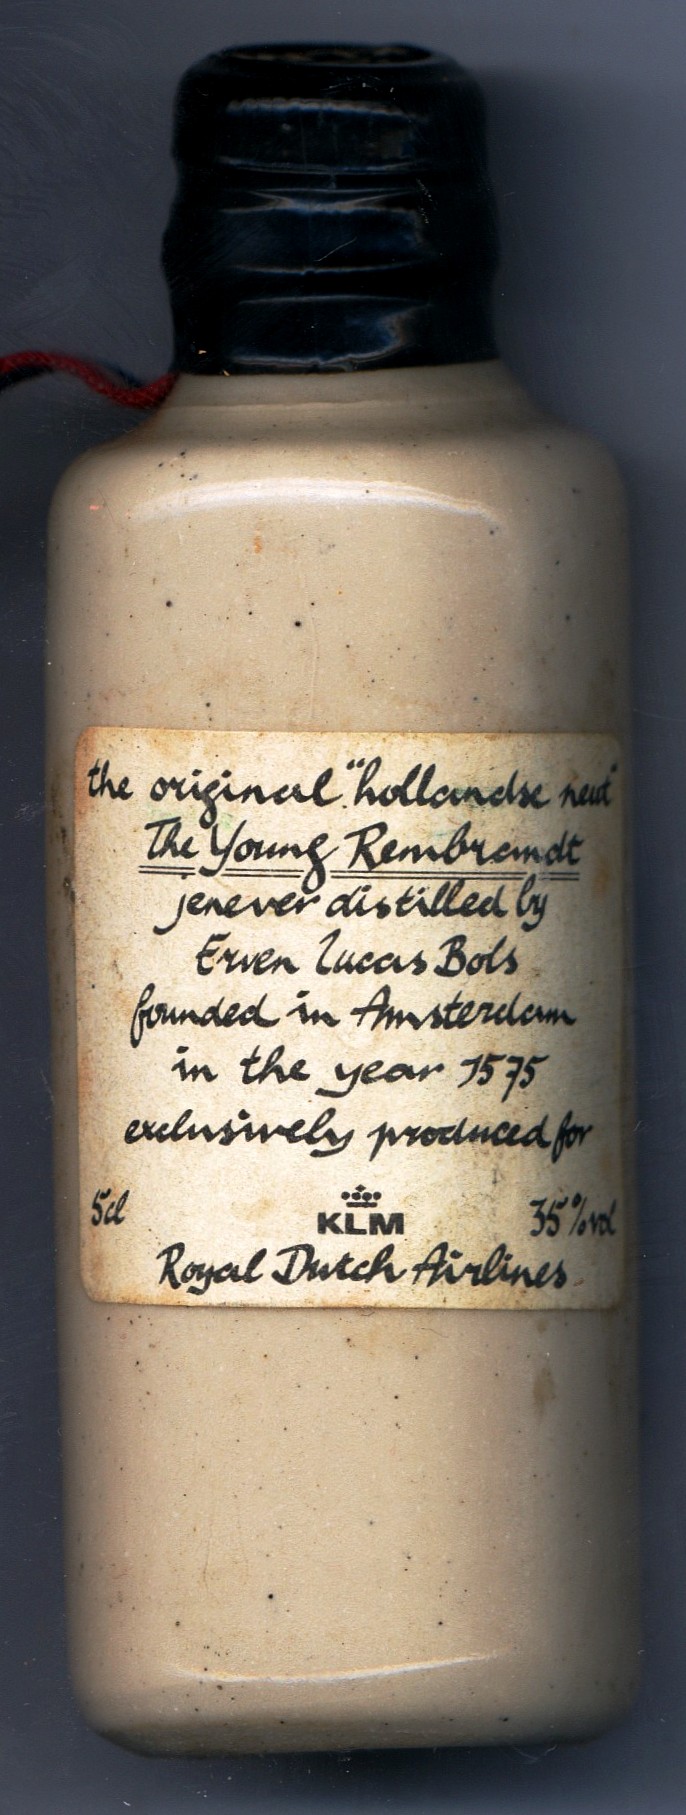 the original "hollandse neut"
The Young Rembrandt
jenever distilled by
Erven Lucas Bols
founded in Amsterdam
in the year 1575
exclusively produced for
5cl KLM 35%vol
Royal Dutch Airlines